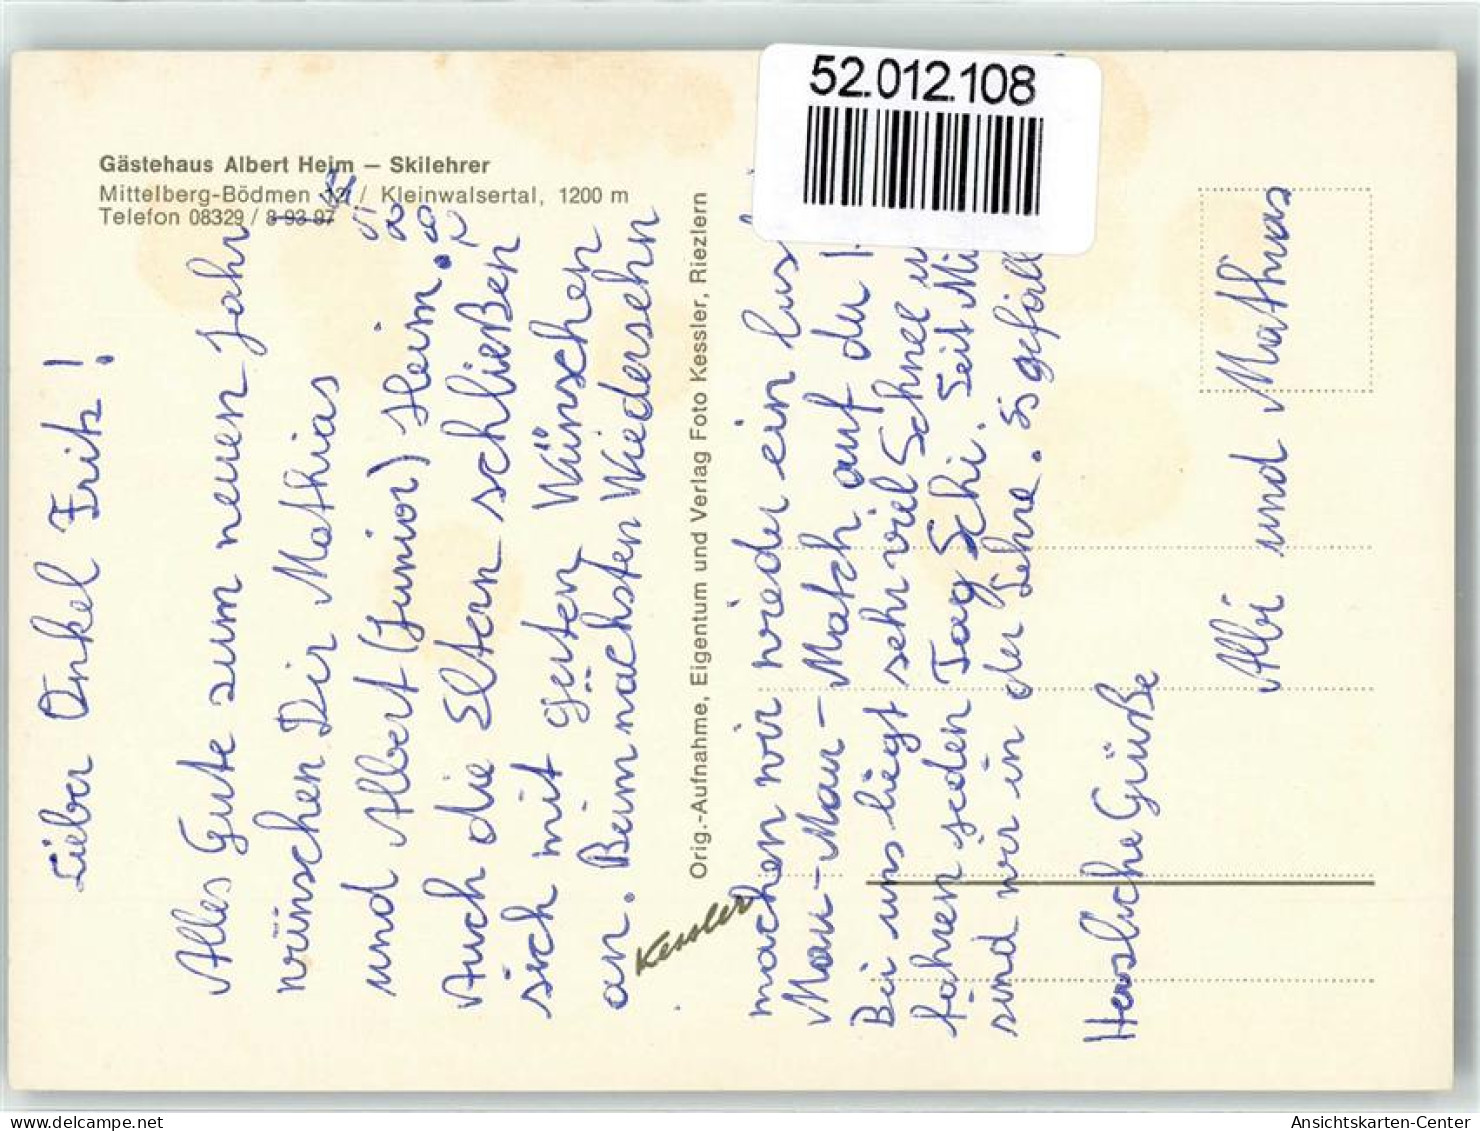 52.012.108
Gästehaus Albert Heim – Skilehrer
Mittelberg-Bödmen 121 / Kleinwalsertal, 1200 m
Telefon 08329 / 8-93-97
Orig.-Aufnahme, Eigentum und Verlag Foto Kessler, Riezlern
Kessler
Lieber Onkel Fritz!
Alles Gute zum neuen Jahr
wünschen Dir Mathias
und Albert (Junior) Heim.
Auch die Eltern schließen
sich mit guten Wünschen
an. Beim nächsten Wiedersehn
machen wir wieder ein
Mau-Mau-Match auf du
Bei uns liegt sehr viel Schnee
fahren jeden Tag Schi. Seit
sind wir in der Lehre. Es
Herzliche Grüße
Albi und Mathias
Ansichtskarten-Center